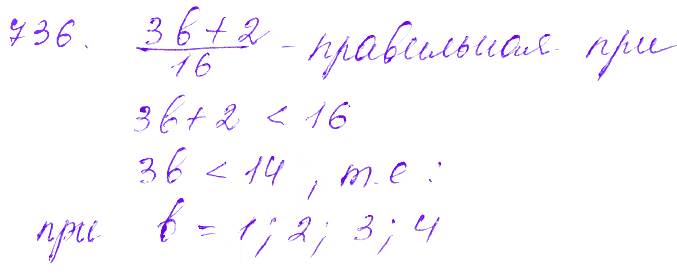 736. (3b+2)/16 – правильная при
3b+2 < 16
3b < 14, т.е:
при b = 1; 2; 3; 4